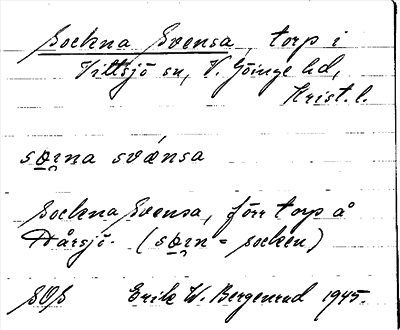 Sockna Svensa, torp i
Vittsjö sn, V. Göinge hd,
Krist. l.
so̱ɪna svǽnsa
Sockna Svensa, förr torp å
Hårsjö. (so̱ɪn = socken)
SOS Erik W. Bergenrud 1945.